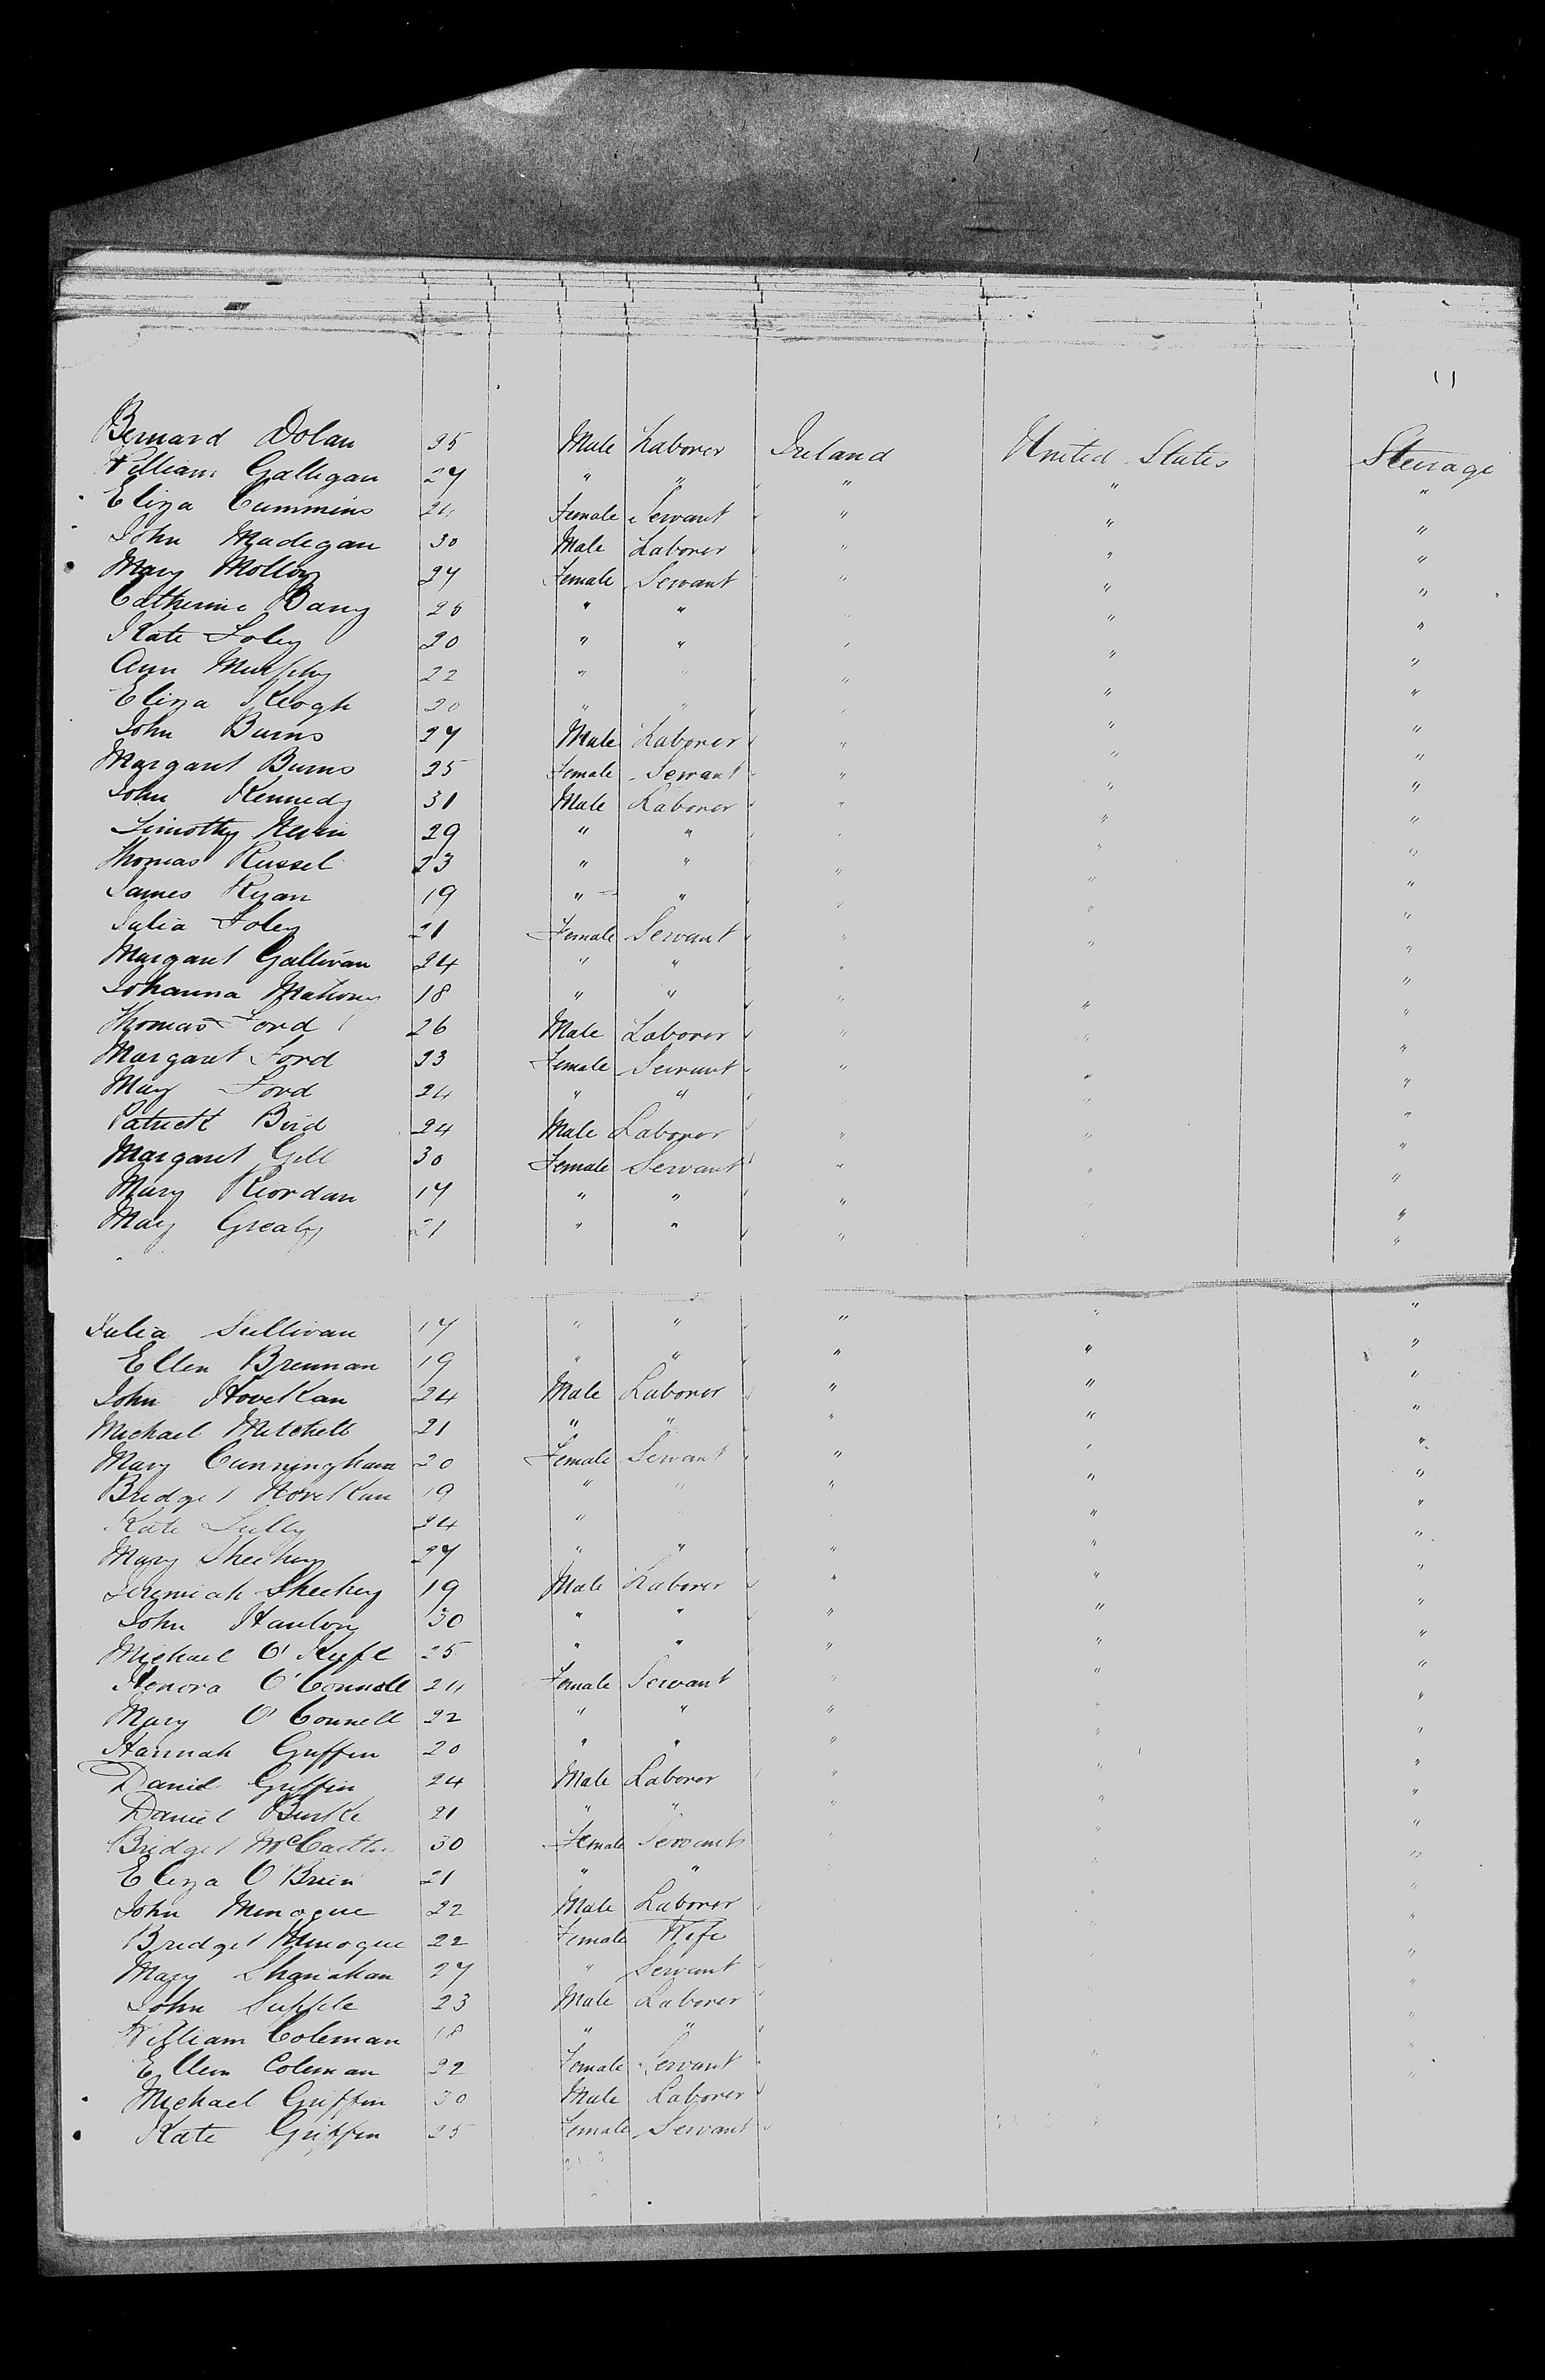 Bernard Dolan 25 Male Laborer Ireland United States Steerage
William Galligan 27 " " " " "
Eliza Cummins 24 Female Servant " " "
John Madegan 30 Male Laborer " " "
Mary Molloy 27 Female Servant " " "
Catherine 26 " " " "
Kate Foley 20 " " " " "
Ann Murphy 22 " " " " "
Eliza Keogh 20 " " " " "
John Burns 27 Male Laborer " " "
Margaret Burns 25 Female Servant " " "
John Kennedy 31 Male Laborer " " "
Timothy 29 " " " " "
Thomas Russel 23 " " " " "
James Ryan 19 " " " " "
Julia Foley 21 Female Servant " " "
Margaret Gallivan 24 " " " " "
Johanna Mahony 18 " " " " "
Thomas Ford 26 Male Laborer " " "
Margaret Ford 23 Female Servant " " "
Mary Ford 24 " " " " "
Patrick Bird 24 Male Laborer " " "
Margaret Gill 30 Female Servant " " "
Mary Riordan 17 " " " " "
Mary Grealy 21 " " " " "
Julia Sullivan 17 " " " " "
Ellen Brennan 19 " " " " "
John Hovekan 24 Male Laborer " " "
Michael Mitchell 21 " " " " "
Mary Cunningham 20 Female Servant " " "
Bridget Hovekan 19 " " " " "
Kate 24 " " "
Mary Sheehy 27 " " " " "
Jeremiah Sheehy 19 Male Laborer " " "
John Hanlon 30 " " " " "
Michael O'Keefe 25 " " " " "
Henora O'Connell 24 Female Servant " " "
Mary O'Connell 22 " " " " "
Hannah Griffin 20 " " " " "
Daniel Griffin 24 Male Laborer " " "
Daniel Burke 21 " " " " "
Bridget McCarthy 30 Female Servant " " "
Eliza O'Brien 21 " " " "
John Minogue 22 Male Laborer " "
Bridget Minogue 22 Female Wife " "
Mary Shanahan 27 " Servant " "
John Supple 23 Male Laborer "
William Coleman 18 " " "
Ellen Coleman 22 Female Servant " "
Michael Griffin 30 Male Laborer " "
Kate Griffin 25 Female Servant